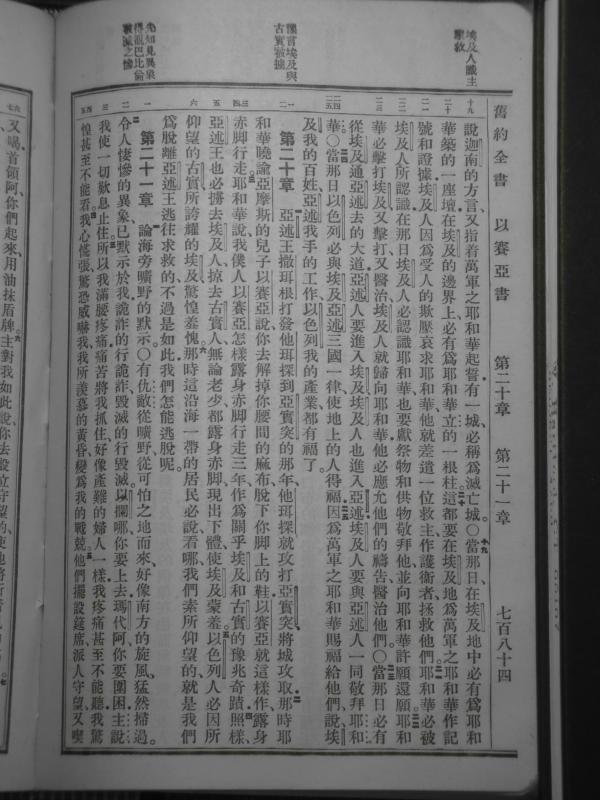 舊約全書 以賽亞書 第二十章 第二十一章 七百八十四
埃及人識主
蒙救
預言埃及與
古實被擄
先知見異象
巴比倫
說迦南的方言又指着萬軍之耶和華起誓有一城必稱爲滅亡城〇當那日在埃及地中必有爲耶和
華築的一座壇在埃及的邊界上必有爲耶和華立的一根柱這都要在埃及地爲萬軍之耶和華作記
號和證據埃及人因爲受人的欺壓哀求耶和華他就差遣一位救主作護衛者拯救他們耶和華必被
埃及人所認識在那日埃及人必認識耶和華也要獻祭物和供物敬拜他並向耶和華許願還願耶和
華必擊打埃及又擊打又醫治埃及人就歸向耶和華他必應允他們的禱告醫治他們〇當那日必有
從埃及通亞述去的大道亞述人要進入埃及埃及人也進入亞述埃及人要與亞述人一同敬拜耶和
華〇當那日以色列必與埃及亞述三國一律使地上的人得福因爲萬軍之耶和華賜福給他們說埃
及我的百姓亞述我手的工作以色列我的產業都有福了
第二十章 亞述王撒珥根打發他珥探到亞實突的那年他珥探就攻打亞實突將城攻取那時耶
和華曉諭亞摩斯的兒子以賽亞說你去解掉你腰間的麻布脫下你脚上的鞋以賽亞就這樣作露身
赤脚行走耶和華說我僕人以賽亞怎樣露身赤脚行走三年作爲關乎埃及和古實的豫兆奇蹟照樣
亞述王也必擄去埃及人掠去古實人無論老少都露身赤脚現出下體使埃及蒙羞以色列人必因所
仰望的古實所誇耀的埃及驚惶羞愧那時這沿海一帶的居民必說看哪我們素所仰望的就是我們
爲脫離亞述王逃往求救的不過是如此我們怎能逃脫呢
第二十一章 論海旁曠野的默示〇有仇敵從曠野從可怕之地而來好像南方的旋風猛然掃過
令人悽慘的異象已默示於我詭詐的行詭詐毀滅的行毀滅以攔哪你要上去瑪代阿你要圍困主說
我使一切歎息止住所以我滿腰疼痛痛苦將我抓住好像產難的婦人一樣我疼痛甚至不能聽我驚
惶甚至不能看我心慌張驚恐威嚇我我所羨慕的黃昏變爲我的戰兢他們擺設筵席派人守望又喫
又喝首領阿你們起來用油抹盾牌主對我如此說你去設立守望的